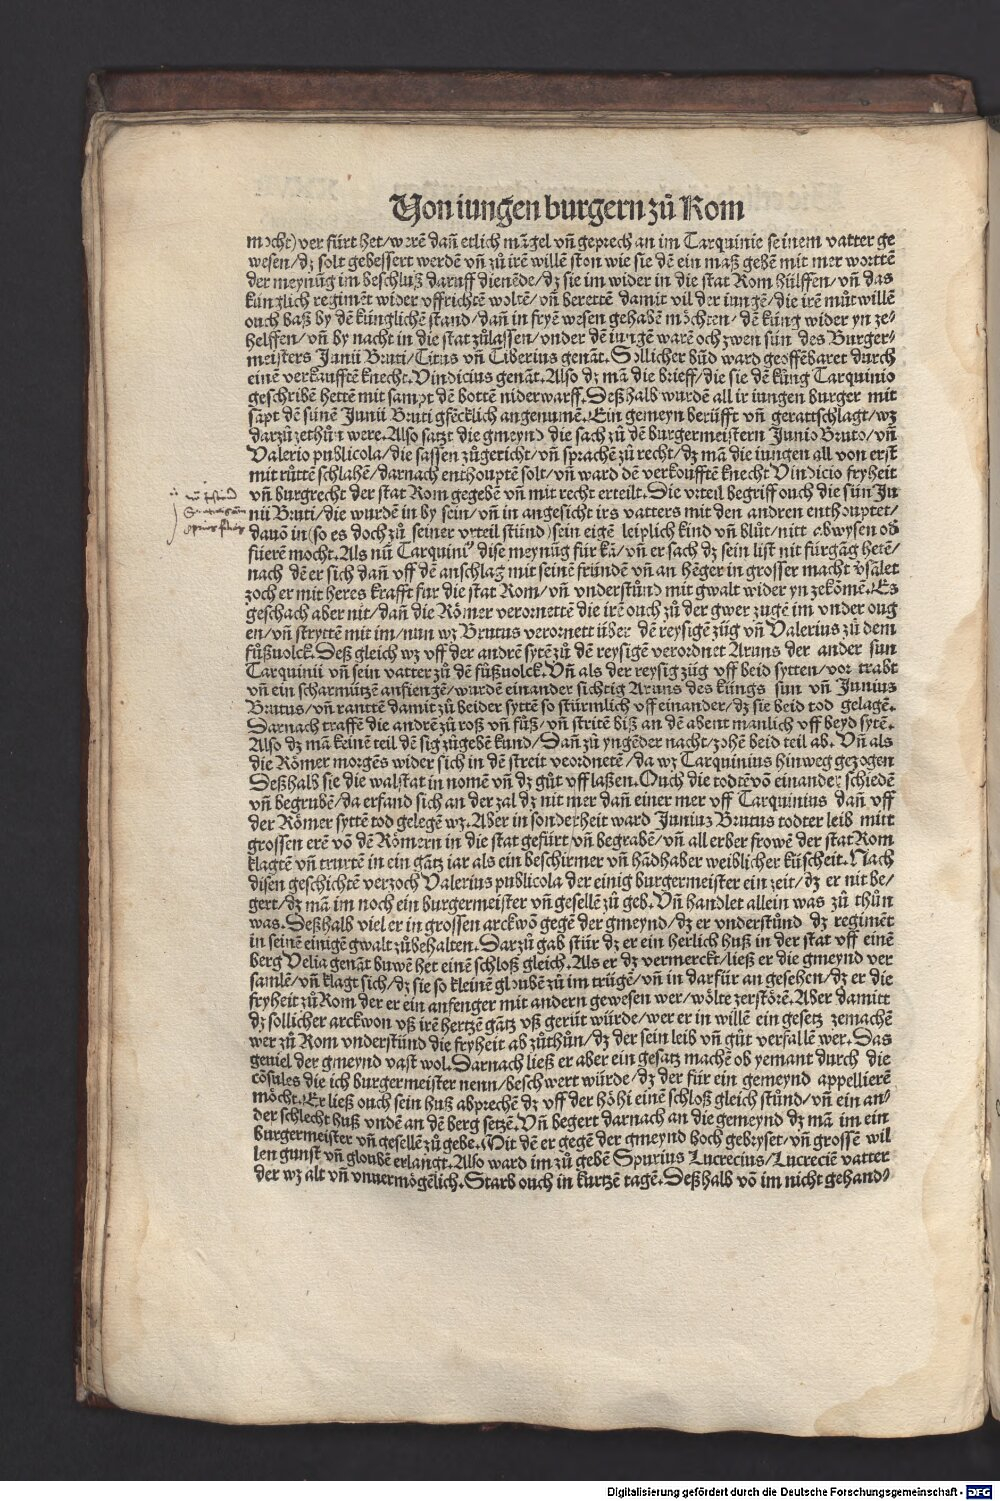 Von iungen burgern zů Rom
mocht) ver fürt het/werē dañ etlich mãgel vñ geprech an im Tarquinie seinem vatter ge
wesen/dz solt gebessert werdē vñ zů irē willē ston wie sie dē ein maß gebē mit mer wortten
der meynũg im beschluß daruff dienēde/dz sie im wider in die stat Rom hülffen/vñ das
künglich regimēt wider vffrichtē woltē/vñ berettē damit vil der iungē/die irē můtwillē
ouch baß by dē künglichē stand/dañ in fryē wesen gehabē möchten/dē küng wider yn ze-
helffen/vñ by nacht in die stat zůlassen/vnder dē iungē warē och zwen sün des Burger-
meisters Junii Bruti/Titus vñ Tiberius genāt. Sollicher būd ward geoffēbaret durch
einē verkaufftē knecht. Vindicius genāt. Also dz mā die brieff/die sie dē küng Tarquinio
geschribē hettē mit sampt dē bottē niderwarff. Deßhalb wurdē all ir iungen burger mit
sāpt dē sünē Junii Bruti gfēcklich angenumē. Ein gemeyn berüfft vñ gerattschlagt/wz
darzů zethůn were. Also satzt die gmeynd die sach zů dē burgermeistern Junio Bruto/vñ
Valerio publicola/die sassen zůgericht/vñ sprachē zů recht/dz mā die iungen all von erst
mit růttē schlahē/darnach enthouptē solt/vñ ward dē verkoufftē knecht Vindicio fryheit
vñ burgrecht der stat Rom gegebē vñ mit recht erteilt. Die vrteil begriff ouch die sün Ju
nii Bruti/die wurdē in by sein/vñ in angesicht irs vatters mit den andren enthouptet/
dauō in(so es doch zů seiner vrteil stůnd)sein eigē leiplich kind vñ blůt/nitt abwysen od
füerē mocht. Als nũ Tarquiniꝰ dise meynũg für kā/vñ er sach dz sein list nit fürgāg hetē/
nach dē er sich dañ vff dē anschlag mit seinē fründē vñ an hēger in grosser macht vsālet
zoch er mit heres krafft für die stat Rom/vñ vnderstůnd mit gwalt wider yn zekömē. Es
geschach aber nit/dañ die Römer verornettē die irē ouch zů der gwer zugē im vnder oug
en/vñ stryttē mit im/nun wz Brutus verornett über dē reysigē züg vñ Valerius zů dem
fůßuolck. Deß gleich wz vff der andrē sytē zů dē reysigē verordnet Aruns der ander sun
Tarquinii vñ sein vatter zů dē fůßuolck. Vñ als der reysig züg vff beid sytten/vor trabt
vñ ein scharmützē anfiengē/wurdē einander sichtig Aruns des küngs sun vñ Junius
Brutus/vñ rantē damit zů beider syttē so stürmlich vff einander/dz sie beid tod gelagē.
Darnach traffē die andrē zů roß vñ fůß/vñ stritē biß an dē abent manlich vff beyd sytē.
Also dz mā keinē teil dē sig zůgebē kund/Dañ zů yngēder nacht/zohē beid teil ab. Vñ als
die Römer morgēs wider sich in dē streit veordnetē/da wz Tarquinius hinweg gezogen
Deßhalb sie die walstat in nomē vñ dz gůt vff laßen. Ouch die todtē vō einander schiedē
vñ begrubē/da erfand sich an der zal dz nit mer dañ einer mer vff Tarquinius dañ vff
der Römer syttē tod gelegē wz. Aber in sonderheit ward Junius Brutus todter leib mitt
grossen erē vō dē Römern in die stat gefürt vñ begrabē/vñ all erber frowē der stat Rom
klagtē vñ trurtē in ein gātz iar als ein beschirmer vñ hādhaber weiblicher küscheit. Nach
disen geschichtē verzoch Valerius publicola der einig burgermeister ein zeit/dz er nit be/
gert/dz mā im noch ein burgermeister vñ gesellē zů geb. Vñ handlet allein was zů thůn
was. Deßhalb viel er in grossen arckwō gegē der gmeynd/dz er vnderstůnd dz regimēt
in seinē einigē gwalt zůbehalten. Darzů gab stür dz er ein herlich huß in der stat vff einē
berg Velia genāt buwē het einē schloß gleich. Als er dz vermerckt/ließ er die gmeynd ver
samlē/vñ klagt sich/dz sie so kleinē gloubē zů im trügē/vñ in darfür an gesehen/dz er die
fryheit zů Rom der er ein anfenger mit andern gewesen wer/wölte zerstörē. Aber damitt
dz sollicher arckwon vß irē hertzē gātz vß gerüt würde/wer er in willē ein gesetz zemachē
wer zů Rom vnderstünd die fryheit ab zůthůn/dz der sein leib vñ gůt verfallē wer. Das
geuiel der gmeynd vast wol. Darnach ließ er aber ein gesatz machē ob yemant durch die
cōsules die ich burgermeister nenn/beschwert würde/dz der für ein gemeynd appellierē
möcht. Er ließ ouch sein huß abprechē dz vff der höhi einē schloß gleich stůnd/vñ ein an-
der schlecht huß vndē an dē berg setzē. Vñ begert darnach an die gemeynd dz mā im ein
burgermeister vñ gesellē zů gebe. Mit dē er gegē der gmeynd hoch gebryset/vñ grossē wil
len gunst vñ gloubē erlangt. Also ward im zů gebē Spurius Lucrecius/Lucreciē vatter
der wz alt vñ vnuermögēlich. Starb ouch in kurtzē tagē. Deßhalb vō im nicht gehand-
Digitalisierung gefördert durch die Deutsche Forschungsgemeinschaft - DFG